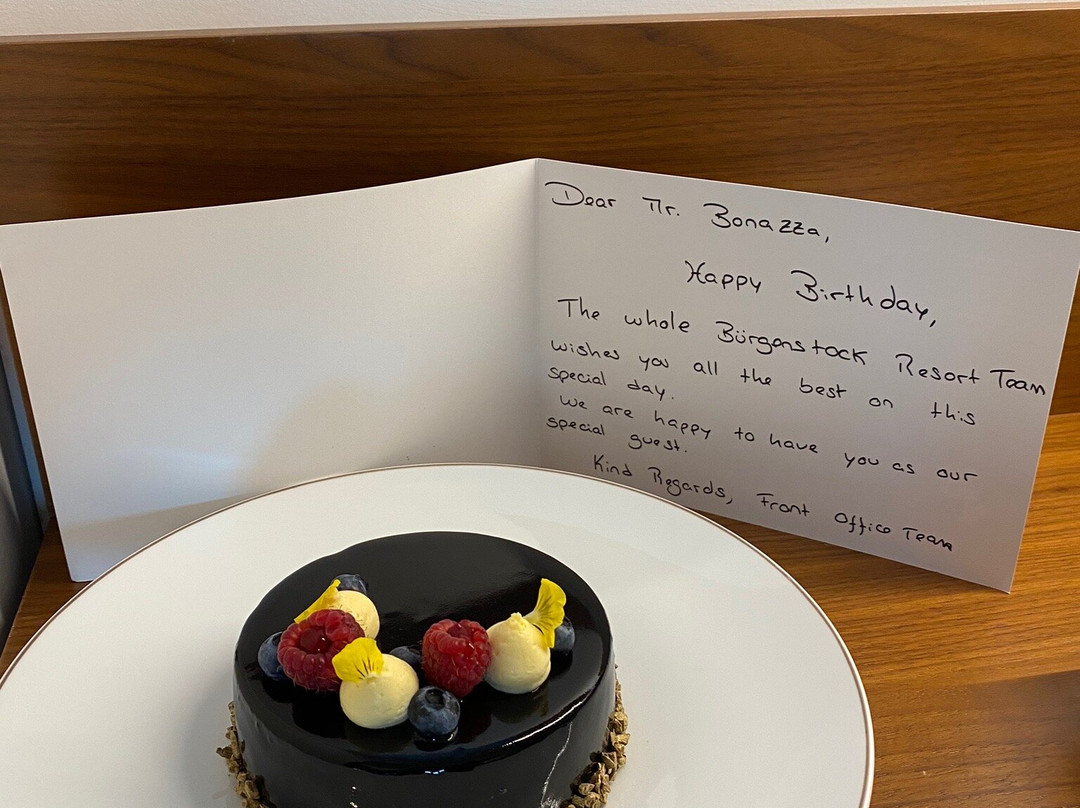 Dear Mr. Bonazza,
Happy Birthday,
The whole Bürgenstock Resort Team
wishes you all the best on this
special day.
We are happy to have you as our
special guest.
Kind Regards, Front Office Team